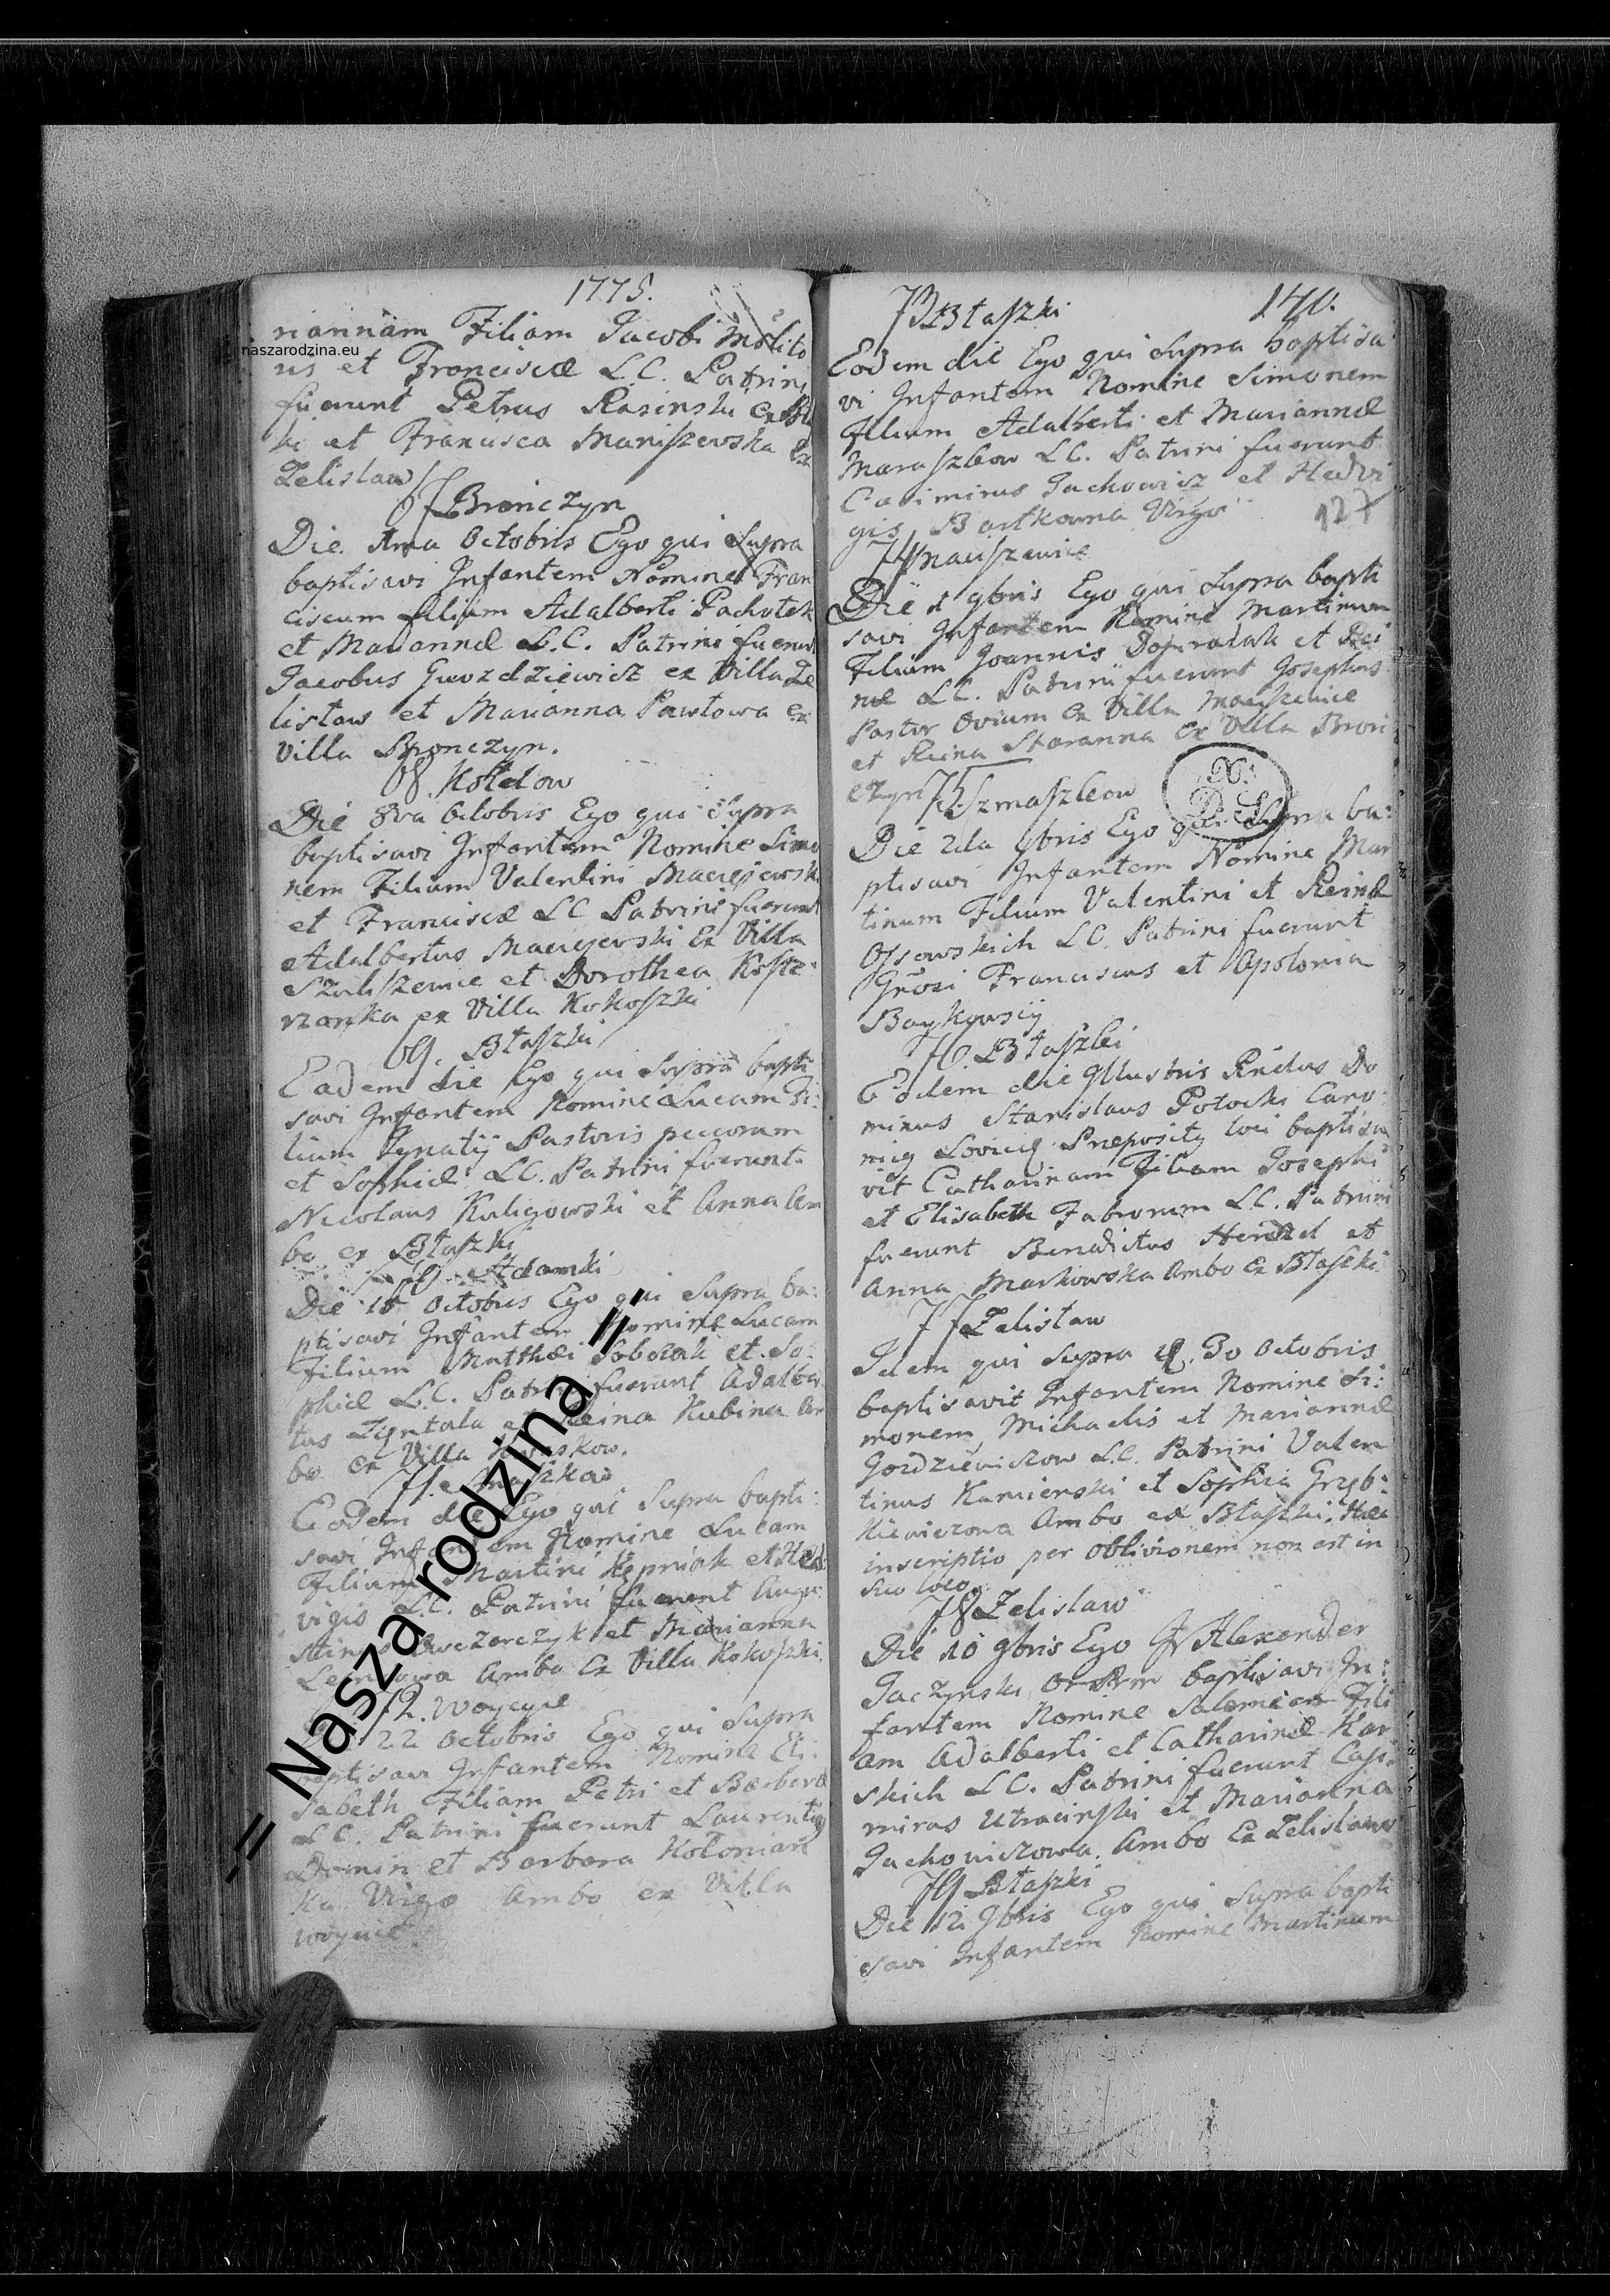 1775.
riannam Filiam Jacobi Molito
ris et Franciscæ L.C. Patrini
fuerunt Petrus Rasinski ex
ki et Francisca Maniszewska Ex
Zelislaw
67 Bronczyn
Die Octobris Ego qui Supra
baptisavi Infantem Nomine Fran
ciscum filium Adalberti Pachotek
et Mariannæ L.C. Patrini fuerunt
Jacobus Gwozdziewicz ex Villa Ze
listaw et Marianna Pawłowa ex
Villa Bronczyn.
68. Kołdow
Die 8va Octobris Ego qui Supra
baptisavi Infantem Nomine Simo
nem Filium Valentini Maciejewski
et Franciscæ LC Patrini fuerunt
Adalbertus Maciejewski Ex Villa
et Dorothea
ex Villa Kokoszki
69. Błaszki
Eadem die Ego qui Supra bapti
savi Infantem Nomine Lucam Fi:
lium Ignatij Pastoris peccorum
et Sophiæ LC. Patrini fuerunt
Nicolaus Kuligowski et Anna Am
bo ex Błaszki
Adamki
Die 15 Octobris Ego qui Supra ba:
ptisavi Infantem Nomine Lucam
Filium Matthæi Sobczak et So:
phiæ L.C. Patrini fuerunt Adalber
tus et Reina Kubina Am
bo Ex Villa
71.
Eodem die Ego qui Supra bapti:
savi Infantem Nomine Lucam
Filium Martini et Hed
vigis L.C. Patrini fuerunt Augu
stinus Owczarczyk et Marianna
Ambo Ex Villa Kokoszki.
72. Woycyce
22 Octobris Ego qui Supra
baptisavi Infantem Nomine Eli:
sabeth Filiam Petri et Barbaræ
L C. Patrini fuerunt Laurentig
Domin et Barbara Kołonian
ka Virgo Ambo ex Villa
140.
73 Błaszki
Eodem die Ego qui Supra baptisa
vi Infantem Nomine Simonem
Filium Adalberti et Mariannæ
LC. Patrini fuerunt
Casimirus Juchowicz et Hedvi
gis Bartkowna Virgo
127
74
Die 1 9bris Ego qui Supra bapti
savi Infantem Nomine Martinum
Filium Joannis et Rei
næ LC. Patrini fuerunt Josephus
Pastor Ovium Ex Villa
et Reina Ex Villa Bron
czyn
75
Die 2da 9bris Ego qui Supra ba:
ptisavi Infantem Nomine Mar
tinum Filium Valentini et Reinæ
Ossowskich LC. Patrini fuerunt
Franciscus et Apolonia
Baykowscy
76 Błaszki
Eodem die Illustris Rndus Do
minus Stanislaus Potocki Cano
nicg Lovicij Præposity loci baptisa
vit Catharinam Filiam Josephi
et Elisabeth Fabrorum LC. Patrini
fuerunt Benedictus et
Anna Markowska Ambo Ex Błaszki
77 Zelistaw
Idem qui Supra Octobris
baptisavit Infantem Nomine Si:
monem Michaelis et Mariannæ
L.C. Patrini Valen
tinus Kamienski et Sophia Grzyb:
kiewiczowa Ambo ex Błaszki. Hæc
inscriptio per oblivionem non est in
suo loco.
78 Zelislaw
Die 10 9bris Ego Fr Alexander
Jaczynski baptisavi In:
fantem Nomine Salomeam Fili
am Adalberti et Catharinæ Kar
skich LC. Patrini fuerunt Casi:
mirus et Marianna
Juchowiczowa. Ambo Ex Zelislaw
79 Błaszki
Die 12 9bris Ego qui Supra bapti
savi Infantem Nomine Martinum
naszarodzina.eu
.:= Nasza rodzina =:.